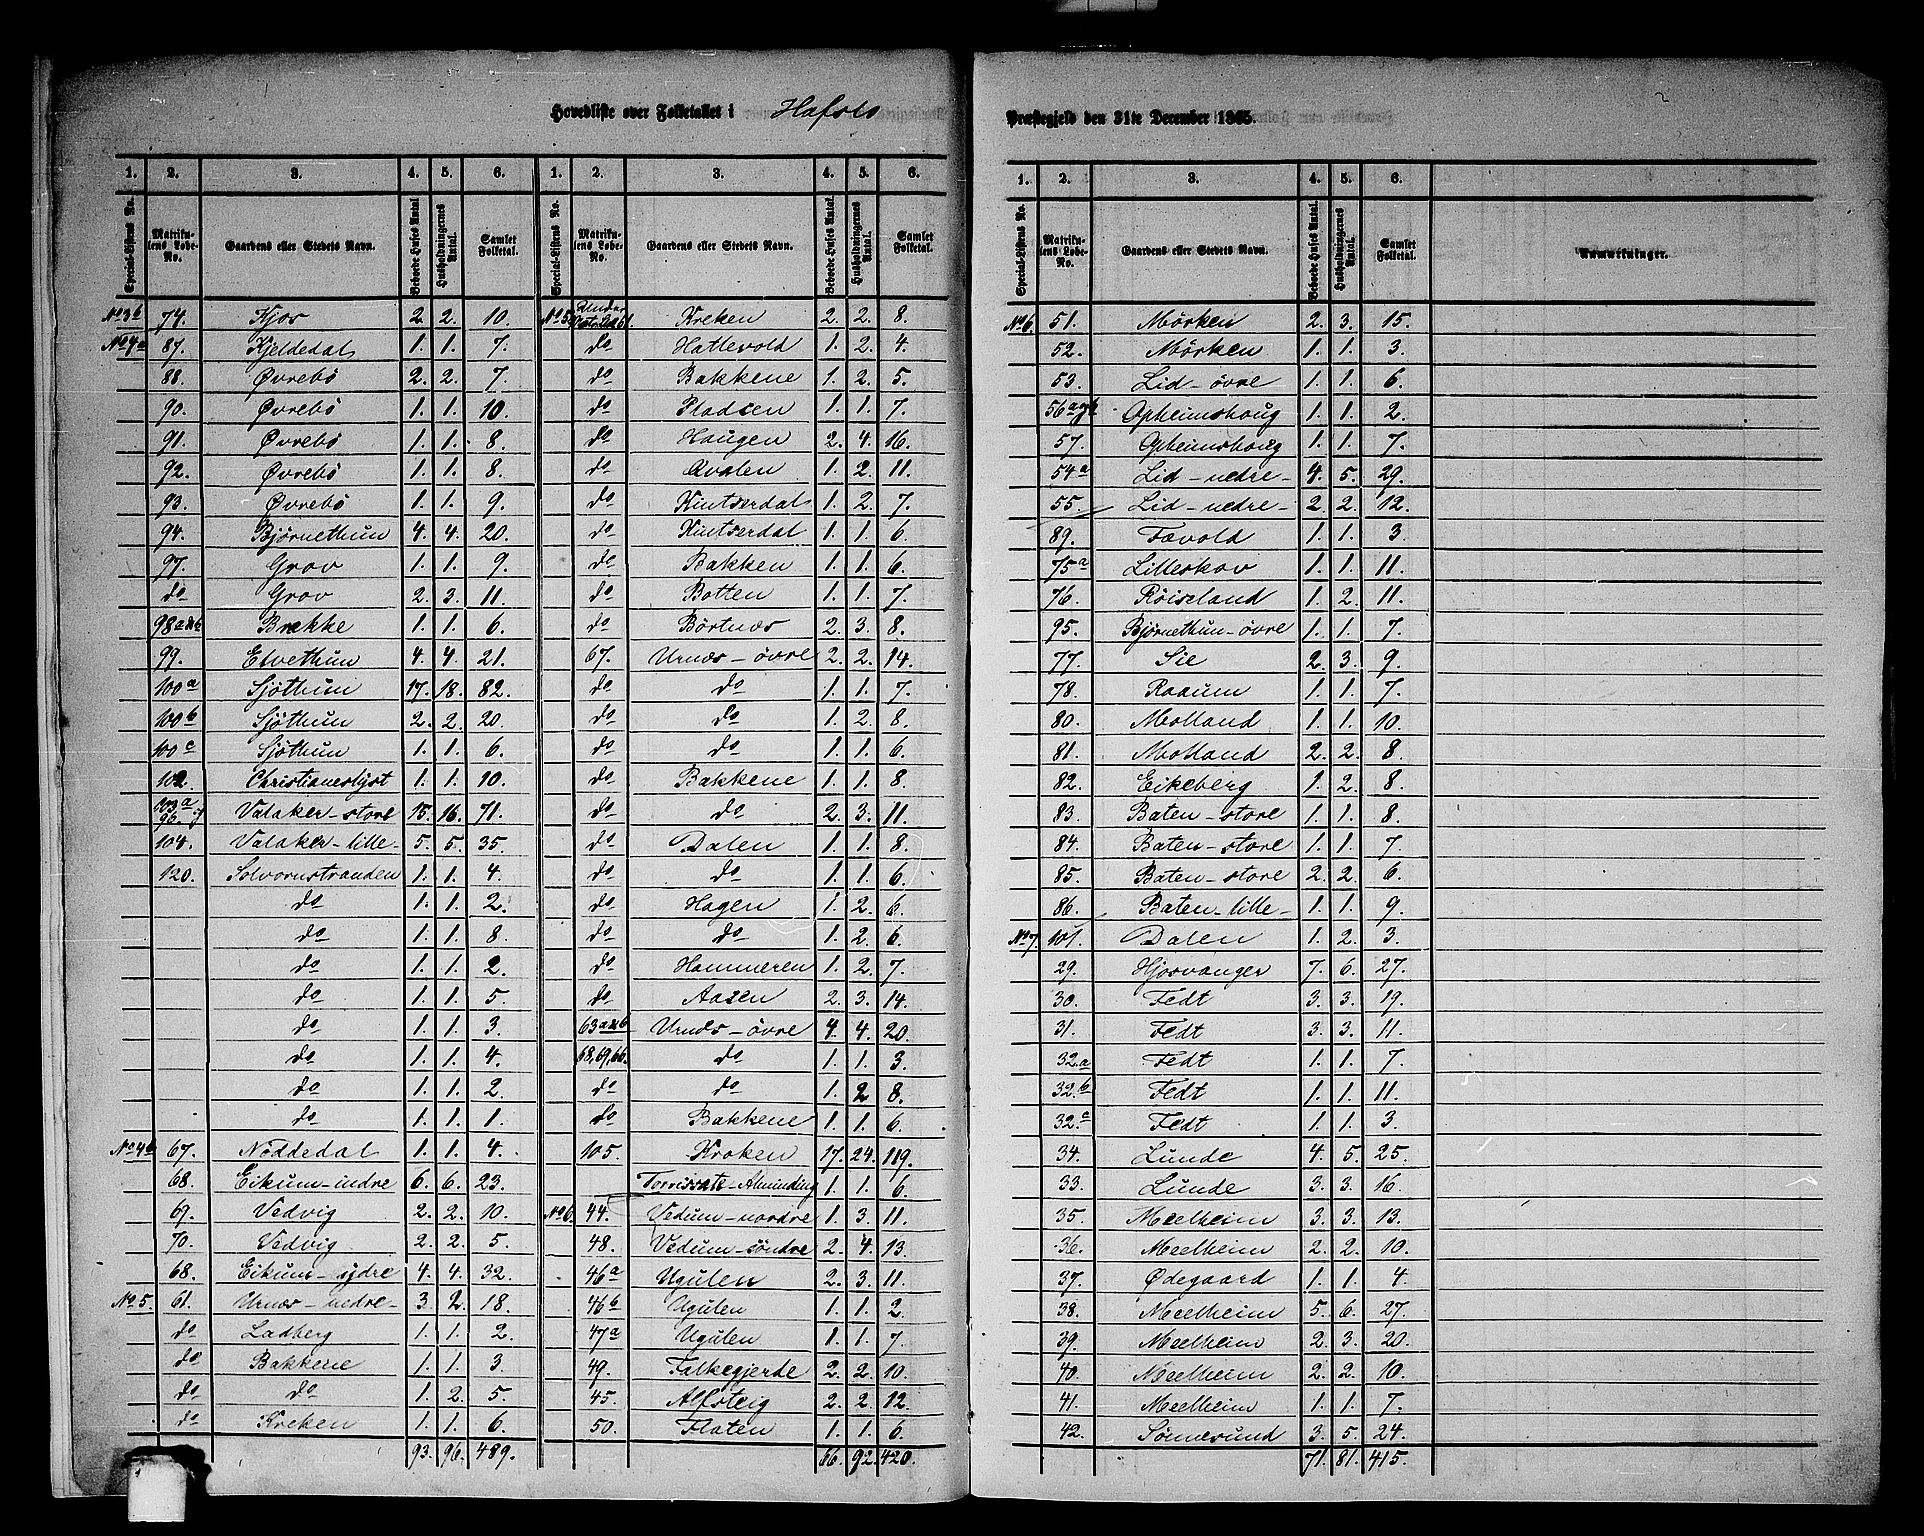 Hovedliste over Folketallet i Hafslo Præstegjeld den 31te December 1865.
1. 2. 3. 4. 5. 6. 1. 2. 3. 4. 5. 6.
Special-Listens No. Matrikulens Løbe-No. Gaardens eller Stedets Navn. Beboede Huses Antal. Husholdningernes Antal. Samlet Folketal. Special-Listens No. Matrikulens Løbe-No. Gaardens eller Stedets Navn. Beboede Huses Antal. Husholdningernes Antal. Samlet Folketal.
No 3b 74. Kjos 2. 2. 10.
No 4a 87. Kjeldedal 1. 1. 7.
88. Øvrebö 2. 2. 7.
90. Øvrebö 1. 1. 10.
91. Øvrebö 1. 1. 8.
92. Øvrebö 1. 1. 8.
93. Øvrebö 1. 1. 9.
94. Bjørnethun 4. 4. 20.
97. Grov 1. 1. 9.
do Grov 2. 3. 11.
98 a & b Brække 1. 1. 6.
99. Elvethun 4. 4. 21.
100a Sjöthun 17. 18. 82.
100b Sjöthun 2. 2. 20.
100c Sjöthun 1. 1. 6.
102. Christianeslyst 1. 1. 10.
103a 96 Valaker-store 15. 16. 71.
104. Valaker-lille- 5. 5. 35.
120. Solvornstranden 1. 1. 4.
do 1. 1. 2.
do 1. 1. 8.
do 1. 1. 2.
do 1. 1. 5.
do 1. 1. 3.
do 1. 1. 4.
do 1. 1. 2.
do 1. 1. 1.
No 4b 67. Noddedal 1. 1. 4.
68. Eikum-indre 6. 6. 23.
69. Vedvig 2. 2. 10.
70. Vedvig 2. 2. 5.
68. Eikum-ydre 4. 4. 32.
No 5. 61. Urnæs-nedre- 3. 2. 18.
do Ladberg 1. 1. 2.
do Bakkene 1. 1. 3.
do do 1. 2. 5.
do Kreken 1. 1. 6.
93. 96. 489.
No 5 Under 61. Kreken 2. 2. 8.
do Hattevold 1. 2. 4.
do Bakkene 1. 2. 5.
do Pladsen 1. 1. 7.
do Haugen 2. 4. 16.
do Qvalen 1. 2. 11.
do Kintserdal 1. 2. 7.
do Kintserdal 1. 1. 6.
do Bakken 1. 1. 6.
do Botten 1. 1. 7.
do Börtnæs 2. 3. 8.
67. Urnæs-övre 2. 2. 14.
do do 1. 1. 7.
do do 1. 2. 8.
do do 1. 1. 6.
do Bakkene 1. 1. 8.
do do 2. 3. 11.
do Dalen 1. 1. 8.
do do 1. 1. 6.
do Hagen 1. 2. 6.
do do 1. 2. 6.
do Hammeren 1. 2. 7.
do Aasen 2. 3. 14.
63 a & b Urnæs-övre 4. 4. 20.
68, 69, 66. do 1. 1. 3.
do do 1. 2 8.
do Bakkene 1. 1. 6.
105. Kroken 17. 24. 119.
Alminding 1. 1. 6.
No 6. 44. Vedum-nordre 1. 3. 11.
48. Vedum-söndre 2. 4. 13.
46a Ugulen 2. 3. 11.
46b Ugulen 1. 1. 2.
47a Ugulen 1. 1. 7.
49. Falkegjerde 2. 2. 10.
45. Alfsteig 2. 2. 12.
50. Flaten 1. 1. 6.
66. 92. 420.
1. 2. 3. 4. 5. 6.
Special-Listens No. Matrikulens Løbe-No. Gaardens eller Stedets Navn. Beboede Huses Antal. Husholdningernes Antal. Samlet Folketal. Anmærkninger.
No 6. 51. Mörken 2. 3. 15.
52. Mörken 1. 1. 3.
53. Lid-övre 1. 1. 6.
56 a og b Opheimshoug 1. 1. 2.
57. Opheimshoug 1. 1. 7.
54a Lid-nedre- 4. 5. 29.
55. Lid-nedre- 2. 2. 12.
89. Fævold 1. 1. 3.
75a Lilleskov 1. 1. 11.
76. Röiseland 1. 2. 11.
95. Bjørnethun-övre 1. 1. 7.
77. Sie 2. 3. 9.
78. Raaum 1. 1. 7.
80. Molland 1. 1. 10.
81. Molland 2. 2. 8.
82. Eikeberg 1. 2. 8.
83. Baten-store 1. 1. 8.
84. Baten-store 1. 1. 7.
85. Baten-store 2. 2. 6.
86. Baten-lille- 1. 1. 9.
No 7. 101. Dalen 1. 2. 3.
29. Hjosvanger 7. 6. 27.
30. Fedt 3. 3. 19.
31. Fedt 3. 3. 11.
32.a Fedt 1. 1. 7.
32.b Fedt 1. 1. 11.
32.c Fedt 1. 1. 3.
34. Lunde 4. 5. 25.
33. Lunde 3. 3. 16.
35. Meelheim 3. 3. 13.
36. Meelheim 2. 2. 10.
37. Ødegaard 1. 1. 4.
38. Meelheim 5. 6. 27.
39. Meelheim 2. 3. 20.
40. Meelheim 2. 2. 10.
41. Meelheim 1. 1. 7.
42. Sönnesund 3. 5. 24.
71. 81. 415.